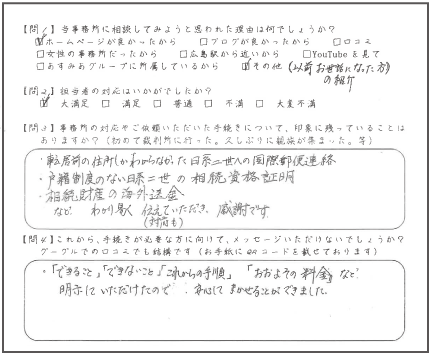 【問1】当事務所に相談してみようと思われた理由は何でしょうか?
☑ホームページが良かったから □ブログが良かったから □口コミ
□女性の事務所だったから □広島駅から近いから □YouTubeを見て
□あすみあグループに所属しているから ☑その他 (以前お世話になった方の紹介)
【問2】担当者の対応はいかがでしたか?
☑ 大満足 □ 満足 □ 普通 □ 不満 □ 大変不満
【問3】事務所の対応やご依頼いただいた手続きについて、印象に残っていることは
ありますか?(初めて裁判所に行った。久しぶりに親族が集まった。等)
・転居前の住所しかわからなかった日系二世への国際郵便連絡
・戸籍制度のない日系二世の相続資格証明
・相続財産の海外送金
など わかり易く伝えていただき、感謝です
(対応も)
【問4】これから、手続きが必要な方に向けて、メッセージいただけないでしょうか?
グーグルでの口コミでも結構です(お手紙にQRコードを載せております)
・「できること」「できないこと」「これからの手順」「おおよその料金」など
明示していただけたので、安心してまかせることができました。